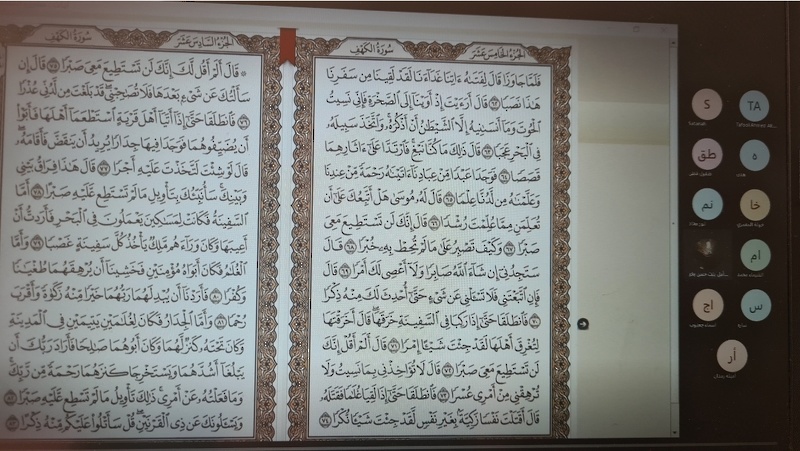 سُورَةُ الكَهْفِ
الجُزْءُ الخَامِسَ عَشَرَ
فَلَمَّا جَاوَزَا قَالَ لِفَتَىٰهُ ءَاتِنَا غَدَآءَنَا لَقَدْ لَقِينَا مِن سَفَرِنَا
هَٰذَا نَصَبًا ٦٢ قَالَ أَرَءَيْتَ إِذْ أَوَيْنَآ إِلَى ٱلصَّخْرَةِ فَإِنِّي نَسِيتُ
ٱلْحُوتَ وَمَآ أَنسَىٰنِيهُ إِلَّا ٱلشَّيْطَٰنُ أَنْ أَذْكُرَهُۥ وَٱتَّخَذَ سَبِيلَهُۥ
فِي ٱلْبَحْرِ عَجَبًا ٦٣ قَالَ ذَٰلِكَ مَا كُنَّا نَبْغِ فَٱرْتَدَّا عَلَىٰٓ ءَاثَارِهِمَا
قَصَصًا ٦٤ فَوَجَدَا عَبْدًا مِّنْ عِبَادِنَآ ءَاتَيْنَٰهُ رَحْمَةً مِّنْ عِندِنَا
وَعَلَّمْنَٰهُ مِن لَّدُنَّا عِلْمًا ٦٥ قَالَ لَهُۥ مُوسَىٰ هَلْ أَتَّبِعُكَ عَلَىٰٓ أَن
تُعَلِّمَنِ مِمَّا عُلِّمْتَ رُشْدًا ٦٦ قَالَ إِنَّكَ لَن تَسْتَطِيعَ مَعِيَ
صَبْرًا ٦٧ وَكَيْفَ تَصْبِرُ عَلَىٰ مَا لَمْ تُحِطْ بِهِۦ خُبْرًا ٦٨ قَالَ
سَتَجِدُنِيٓ إِن شَآءَ ٱللَّهُ صَابِرًا وَلَآ أَعْصِي لَكَ أَمْرًا ٦٩ قَالَ
فَإِنِ ٱتَّبَعْتَنِي فَلَا تَسْـَٔلْنِي عَن شَيْءٍ حَتَّىٰٓ أُحْدِثَ لَكَ مِنْهُ ذِكْرًا
٧٠ فَٱنطَلَقَا حَتَّىٰٓ إِذَا رَكِبَا فِي ٱلسَّفِينَةِ خَرَقَهَا ۖ قَالَ أَخَرَقْتَهَا
لِتُغْرِقَ أَهْلَهَا لَقَدْ جِئْتَ شَيْـًٔا إِمْرًا ٧١ قَالَ أَلَمْ أَقُلْ إِنَّكَ
لَن تَسْتَطِيعَ مَعِيَ صَبْرًا ٧٢ قَالَ لَا تُؤَاخِذْنِي بِمَا نَسِيتُ وَلَا
تُرْهِقْنِي مِنْ أَمْرِي عُسْرًا ٧٣ فَٱنطَلَقَا حَتَّىٰٓ إِذَا لَقِيَا غُلَٰمًا فَقَتَلَهُۥ
قَالَ أَقَتَلْتَ نَفْسًا زَكِيَّةًۢ بِغَيْرِ نَفْسٍ لَّقَدْ جِئْتَ شَيْـًٔا نُّكْرًا ٧٤
سُورَةُ الكَهْفِ
الجُزْءُ السَّادِسَ عَشَرَ
۞ قَالَ أَلَمْ أَقُل لَّكَ إِنَّكَ لَن تَسْتَطِيعَ مَعِيَ صَبْرًا ٧٥ قَالَ إِن
سَأَلْتُكَ عَن شَيْءٍۭ بَعْدَهَا فَلَا تُصَٰحِبْنِي ۖ قَدْ بَلَغْتَ مِن لَّدُنِّي عُذْرًا
٧٦ فَٱنطَلَقَا حَتَّىٰٓ إِذَآ أَتَيَآ أَهْلَ قَرْيَةٍ ٱسْتَطْعَمَآ أَهْلَهَا فَأَبَوْا۟
أَن يُضَيِّفُوهُمَا فَوَجَدَا فِيهَا جِدَارًا يُرِيدُ أَن يَنقَضَّ فَأَقَامَهُۥ ۖ
قَالَ لَوْ شِئْتَ لَتَّخَذْتَ عَلَيْهِ أَجْرًا ٧٧ قَالَ هَٰذَا فِرَاقُ بَيْنِي
وَبَيْنِكَ ۚ سَأُنَبِّئُكَ بِتَأْوِيلِ مَا لَمْ تَسْتَطِع عَّلَيْهِ صَبْرًا ٧٨ أَمَّا
ٱلسَّفِينَةُ فَكَانَتْ لِمَسَٰكِينَ يَعْمَلُونَ فِي ٱلْبَحْرِ فَأَرَدتُّ أَنْ
أَعِيبَهَا وَكَانَ وَرَآءَهُم مَّلِكٌ يَأْخُذُ كُلَّ سَفِينَةٍ غَصْبًا ٧٩ وَأَمَّا
ٱلْغُلَٰمُ فَكَانَ أَبَوَاهُ مُؤْمِنَيْنِ فَخَشِينَآ أَن يُرْهِقَهُمَا طُغْيَٰنًا
وَكُفْرًا ٨٠ فَأَرَدْنَآ أَن يُبْدِلَهُمَا رَبُّهُمَا خَيْرًا مِّنْهُ زَكَوٰةً وَأَقْرَبَ
رُحْمًا ٨١ وَأَمَّا ٱلْجِدَارُ فَكَانَ لِغُلَٰمَيْنِ يَتِيمَيْنِ فِي ٱلْمَدِينَةِ
وَكَانَ تَحْتَهُۥ كَنزٌ لَّهُمَا وَكَانَ أَبُوهُمَا صَٰلِحًا فَأَرَادَ رَبُّكَ أَن
يَبْلُغَآ أَشُدَّهُمَا وَيَسْتَخْرِجَا كَنزَهُمَا رَحْمَةً مِّن رَّبِّكَ ۚ
وَمَا فَعَلْتُهُۥ عَنْ أَمْرِي ۚ ذَٰلِكَ تَأْوِيلُ مَا لَمْ تَسْطِع عَّلَيْهِ صَبْرًا ٨٢
وَيَسْـَٔلُونَكَ عَن ذِي ٱلْقَرْنَيْنِ ۖ قُلْ سَأَتْلُوا۟ عَلَيْكُم مِّنْهُ ذِكْرًا ٨٣
S
TA
طق
ه
هدى
نم
خا
ام
اج
س
سارة
أر